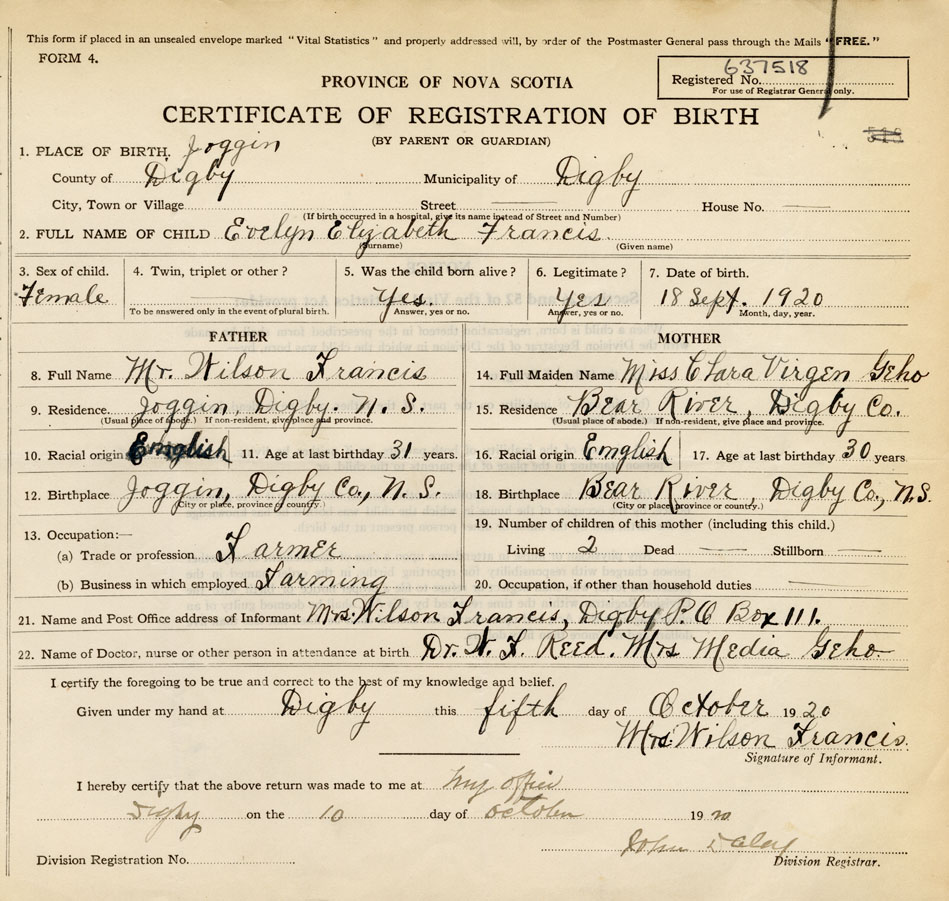 This form if placed in an unsealed envelope marked "Vital Statistics" and properly addressed will, by order of the Postmaster General pass through the Mails "FREE."
FORM 4.
637518
Registered No.
For use of Registrar General only.
PROVINCE OF NOVA SCOTIA
CERTIFICATE OF REGISTRATION OF BIRTH
(BY PARENT OR GUARDIAN)
1. PLACE OF BIRTH. Joggin
County of Digby Municipality of Digby
City, Town or Village Street House No.
(If birth occurred in a hospital, give its name instead of Street and Number)
2. FULL NAME OF CHILD Evelyn Elizabeth Francis
(Surname) (Given name)
3. Sex of child. 4. Twin, triplet or other? 5. Was the child born alive? 6. Legitimate? 7. Date of birth.
Female Yes. Yes 18 Sept. 1920
To be answered only in the event of plural birth. Answer, yes or no. Answer, yes or no. Month, day, year.
FATHER MOTHER
8. Full Name Mr. Wilson Francis 14. Full Maiden Name Miss Clara Virgen Geho
9. Residence. Joggin, Digby. N. S. 15. Residence Bear River, Digby Co.
(Usual place of abode.) If non-resident, give place and province. (Usual place of abode.) If non-resident, give place and province.
10. Racial origin English 11. Age at last birthday 31 years. 16. Racial origin English 17. Age at last birthday 30 years
12. Birthplace Joggin, Digby Co., N. S. 18. Birthplace Bear River, Digby Co., N.S.
(City or place, province or country.) (City or place, province or country.)
13. Occupation:— 19. Number of children of this mother (including this child.)
(a) Trade or profession Farmer Living 2 Dead Stillborn
(b) Business in which employed Farming 20. Occupation, if other than household duties
21. Name and Post Office address of Informant Mrs. Wilson Francis, Digby P.O Box 111.
22. Name of Doctor, nurse or other person in attendance at birth Dr. W. F. Reed. Mrs Media Geho
I certify the foregoing to be true and correct to the best of my knowledge and belief.
Given under my hand at Digby this fifth day of October 1920
Mrs. Wilson Francis.
Signature of Informant.
I hereby certify that the above return was made to me at my office
Digby on the 10 day of October 1920
John Daley
Division Registration No. Division Registrar.